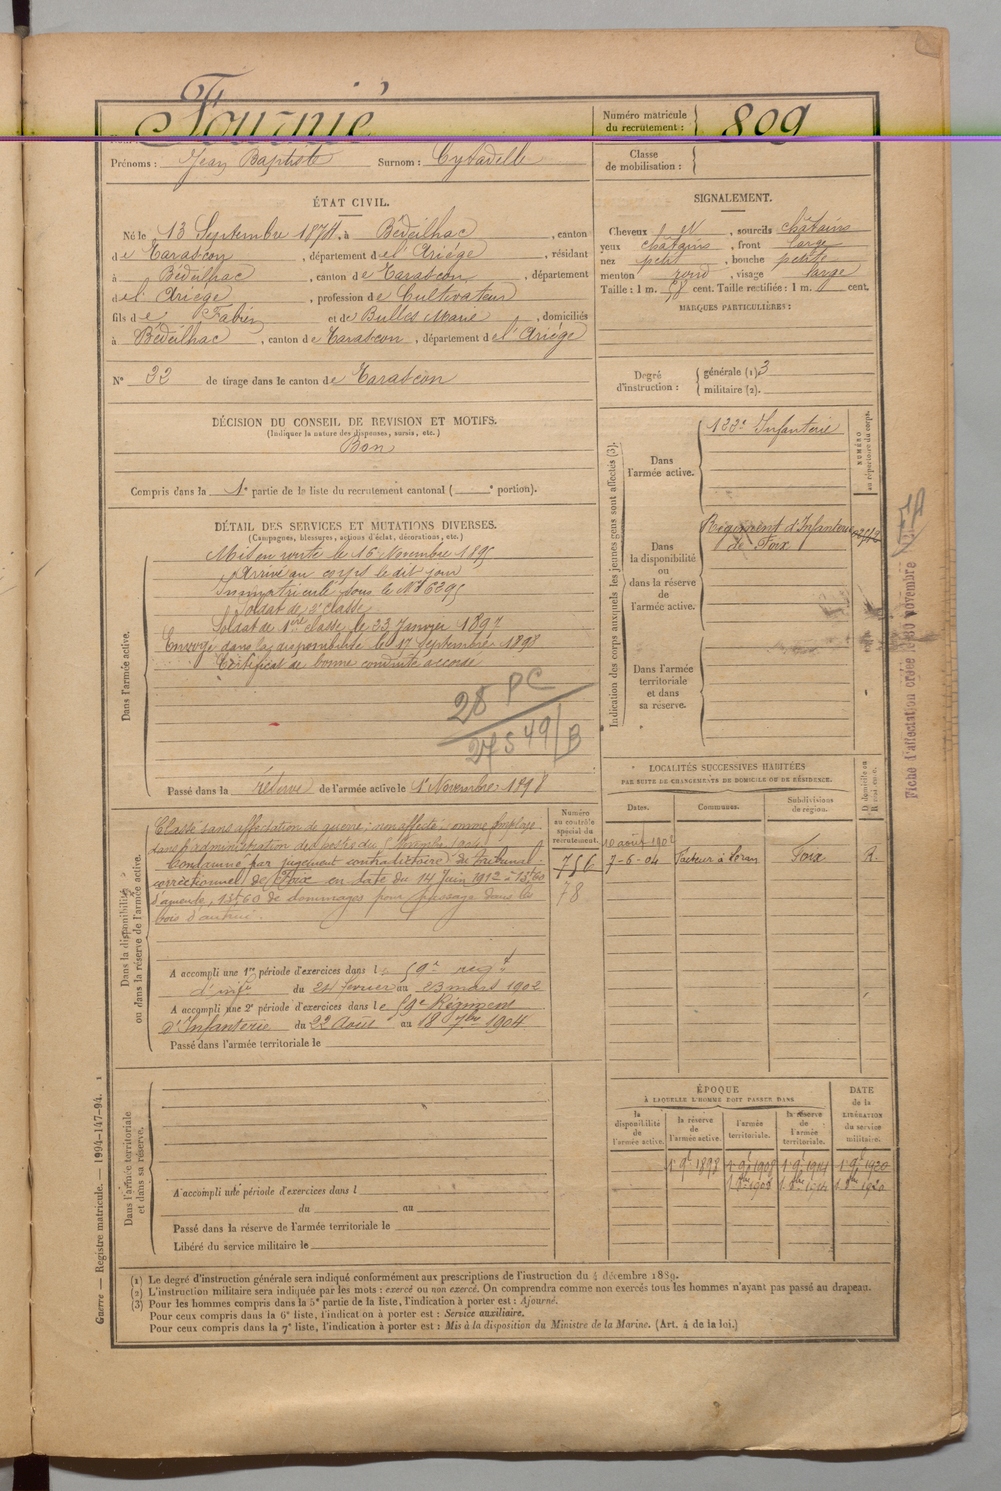 Fournié
Numéro matricule du recrutement : 809
Prénoms : Jean Baptiste Surnom : Cytadelle
Classe de mobilisation :
ÉTAT CIVIL.
Né le 13 Septembre 1874, à Bédeilhac, canton
de Tarascon, département de l'Ariége, résidant
à Bédeilhac, canton de Tarascon, département
de l'Ariège, profession de Cultivateur
fils de Fabien et de Bulles Marie, domiciliés
à Bédeilhac, canton de Tarascon, département de l'Ariége
N° 32 de tirage dans le canton de Tarascon
SIGNALEMENT.
Cheveux , sourcils châtains
yeux châtains, front large
nez petit, bouche petite
menton rond, visage large
Taille : 1 m. 58 cent. Taille rectifiée : 1 m. cent.
MARQUES PARTICULIÈRES :
Degré d'instruction : générale (1). 3
militaire (2).
DÉCISION DU CONSEIL DE REVISION ET MOTIFS.
(Indiquer la nature des dispenses, sursis, etc.)
Bon
Compris dans la 1e partie de la liste du recrutement cantonal ( e portion).
DÉTAIL DES SERVICES ET MUTATIONS DIVERSES.
(Campagnes, blessures, actions d'éclat, décorations, etc.)
Dans l'armée active.
Mis en route le 16 Novembre 1895
Arrivé au corps le dit jour
Immatriculé sous le N° 6295
Soldat de 2e classe
Soldat de 1ère classe le 23 Janvier 1897
Envoyé dans la disponibilité le 17 Septembre 1898
Certificat de bonne conduite accordé
28 PC
27 S 49/B
Passé dans la réserve de l'armée active le 1er Novembre 1898
Indication des corps auxquels les jeunes gens sont affectés (3).
Dans l'armée active.
122e Infanterie
NUMÉRO au répertoire du corps.
Dans la disponibilité ou dans la réserve de l'armée active.
Régiment d'Infanterie
de Foix
Dans l'armée territoriale et dans sa réserve.
Fiche d'affectation créée le 30 novembre
LOCALITÉS SUCCESSIVES HABITÉES
PAR SUITE DE CHANGEMENTS DE DOMICILE OU DE RÉSIDENCE.
Dates. Communes. Subdivisions de région. D. domicile ou R. résidence.
10 août 1902
7-6-04 Facteur à Foix R.
Dans la disponibilité ou dans la réserve de l'armée active.
Numéro au contrôle spécial du recrutement.
756
78
Classé sans affectation de guerre : non affecté : comme employé
dans l'administration des postes du
Condamné par jugement contradictoire du tribunal
correctionnel de Foix en date du 14 Juin 1912 à 13f60
d'amende, 13f60 de dommages pour passage dans les
bois d'autrui.
A accompli une 1re période d'exercices dans le 59e regt
d'infie du 24 février au 23 mars 1902
A accompli une 2e période d'exercices dans le 59e Régiment
d'Infanterie du 22 Août au 18 7bre 1904
Passé dans l'armée territoriale le
Dans l'armée territoriale et dans sa réserve.
A accompli une période d'exercices dans l
du au
Passé dans la réserve de l'armée territoriale le
Libéré du service militaire le
ÉPOQUE
À LAQUELLE L'HOMME DOIT PASSER DANS
la disponibilité de l'armée active. la réserve de l'armée active. l'armée territoriale. la réserve de l'armée territoriale.
DATE de la LIBÉRATION du service militaire.
1er 9bre 1898 1er 9bre 1908 1er 9bre 1914 1er 9bre 1920
1er 8bre 1908 1er 8bre 1914 1er 8bre 1920
Guerre — Registre matricule. — 1994-147-94. 1
(1) Le degré d'instruction générale sera indiqué conformément aux prescriptions de l'instruction du 4 décembre 1889.
(2) L'instruction militaire sera indiquée par les mots : exercé ou non exercé. On comprendra comme non exercés tous les hommes n'ayant pas passé au drapeau.
(3) Pour les hommes compris dans la 5e partie de la liste, l'indication à porter est : Ajourné.
Pour ceux compris dans la 6e liste, l'indication à porter est : Service auxiliaire.
Pour ceux compris dans la 7e liste, l'indication à porter est : Mis à la disposition du Ministre de la Marine. (Art. 4 de la loi.)